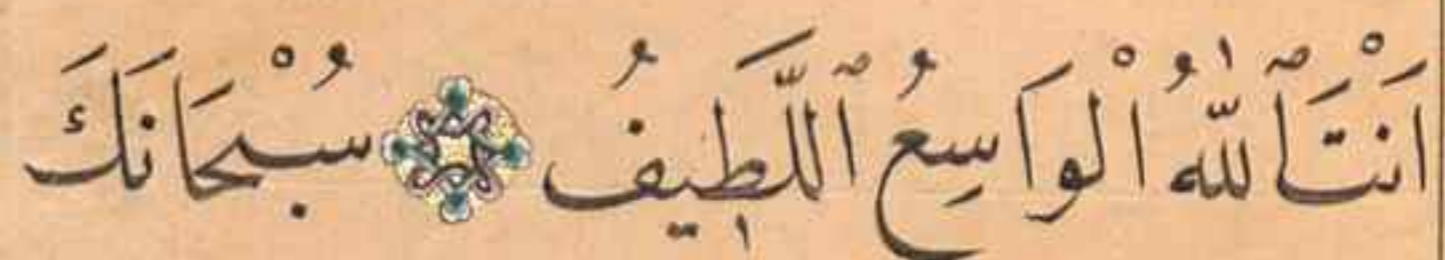 اَنْتَ ٱللّٰهُ الْوَاسِعُ ٱللَّطِيفُ سُبْحَانَكَ